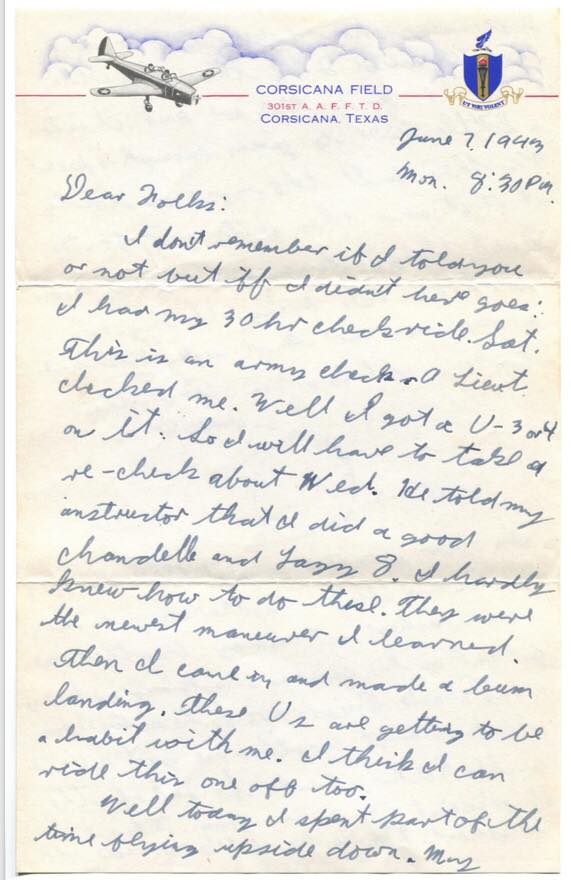 CORSICANA FIELD
301ST A. A. F. F. T. D.
CORSICANA, TEXAS
UT VIRI VOLENT
June 7, 1943
Mon. 8:30 P.m.
Dear Folks:
I don't remember if I told you
or not but if I didn't here goes:
I had my 30 hr check ride Sat.
This is an army check. A Lieut.
checked me. Well I got a U-3 or 4
on it. So I will have to take a
re-check about Wed. He told my
instructor that I did a good
chandelle and Lazy 8. I hardly
knew how to do these. They were
the newest maneuver I learned.
Then I came in and made a bum
landing. These Us are getting to be
a habit with me. I think I can
ride this one off too.
Well today I spent part of the
time flying upside down. My